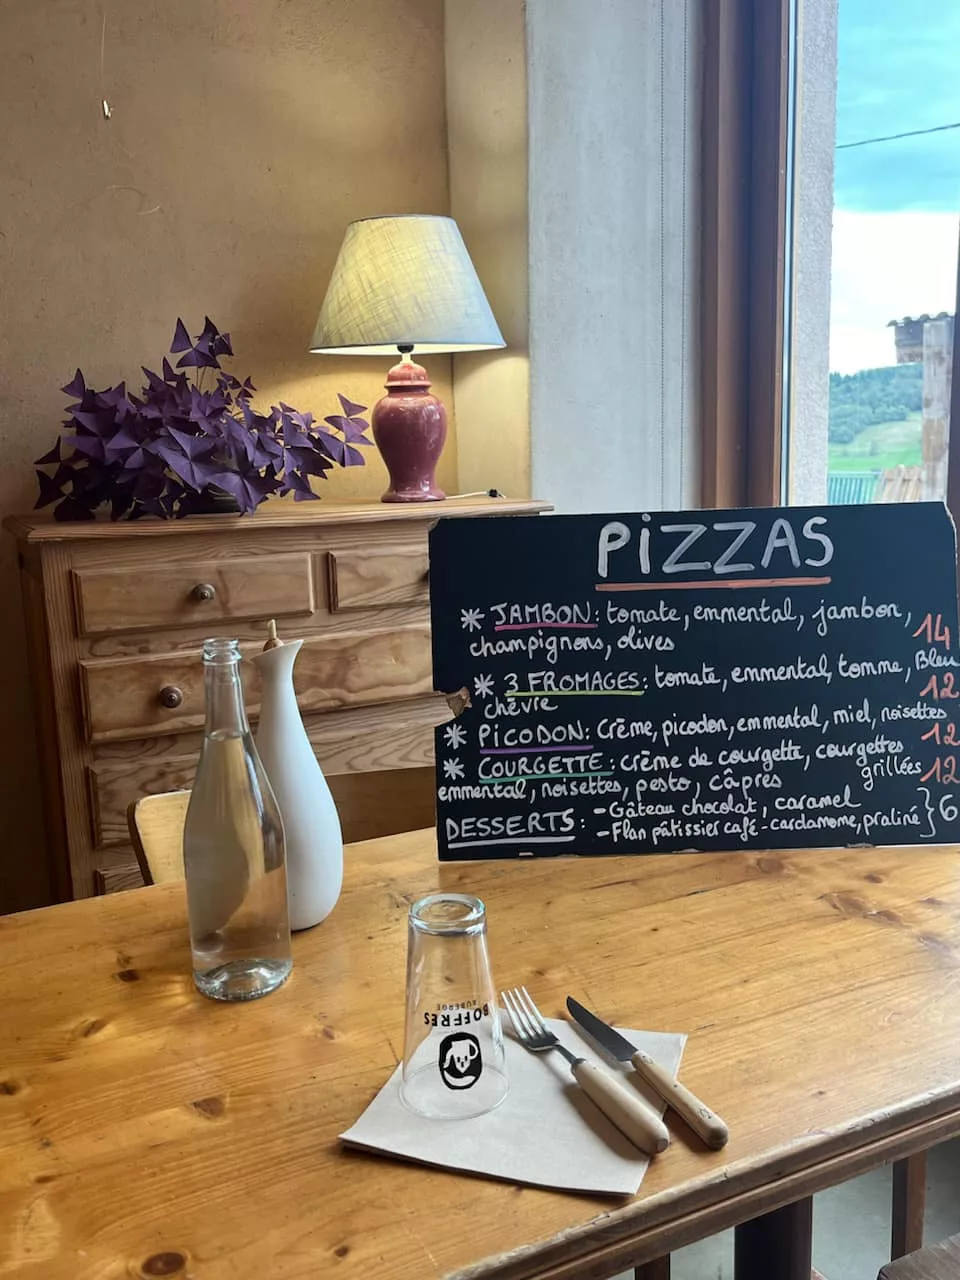 PIZZAS
* JAMBON: tomate, emmental, jambon,
champignons, olives 14
* 3 FROMAGES: tomate, emmental, tomme, Bleu
chèvre 12
* PICODON: Crème, picodon, emmental, miel, noisettes 12
* COURGETTE: crème de courgette, courgettes grillées
emmental, noisettes, pesto, câpres 12
DESSERTS: - Gâteau chocolat, caramel
- Flan pâtissier café-cardamome, praliné } 6
AUBERGE
BOFFRES